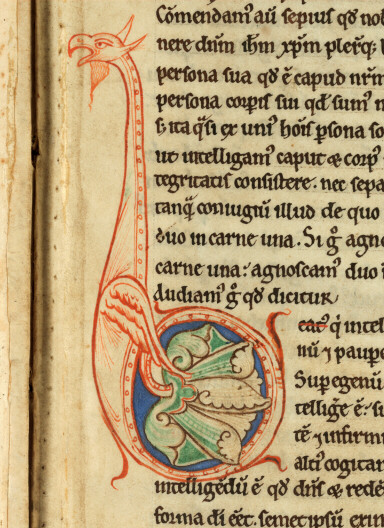 Cōmendamꝰ aū sepiuſ qđ nob
nere dn̄m ih̄m xp̄m plerq;
perſona ſua qđ ē capud nr̄m
perſona corꝑiſ ſui qđ ſumꝰ n
ſ; ita q̄ſi ex uniꝰ hōiſ ꝑſona
ut intelligamꝰ caput & corpꝰ
tegritatiſ conſiſtere. nec ſepa
tanq̄ coniugiū illud de quo
duo in carne una. Si gͦ agno
carne una: agnoſcamꝰ duo
Audiamꝰ gͦ qđ dicitur
B eatꝰ qi intel
nū ⁊ paupe
Sup egenū
tellige ē. ſi
tē ⁊ infirm
altiꝰ cogitan
intelligēdū ē qđ dn̄ſ & redē
forma dī eēt. ſemetipſū exin